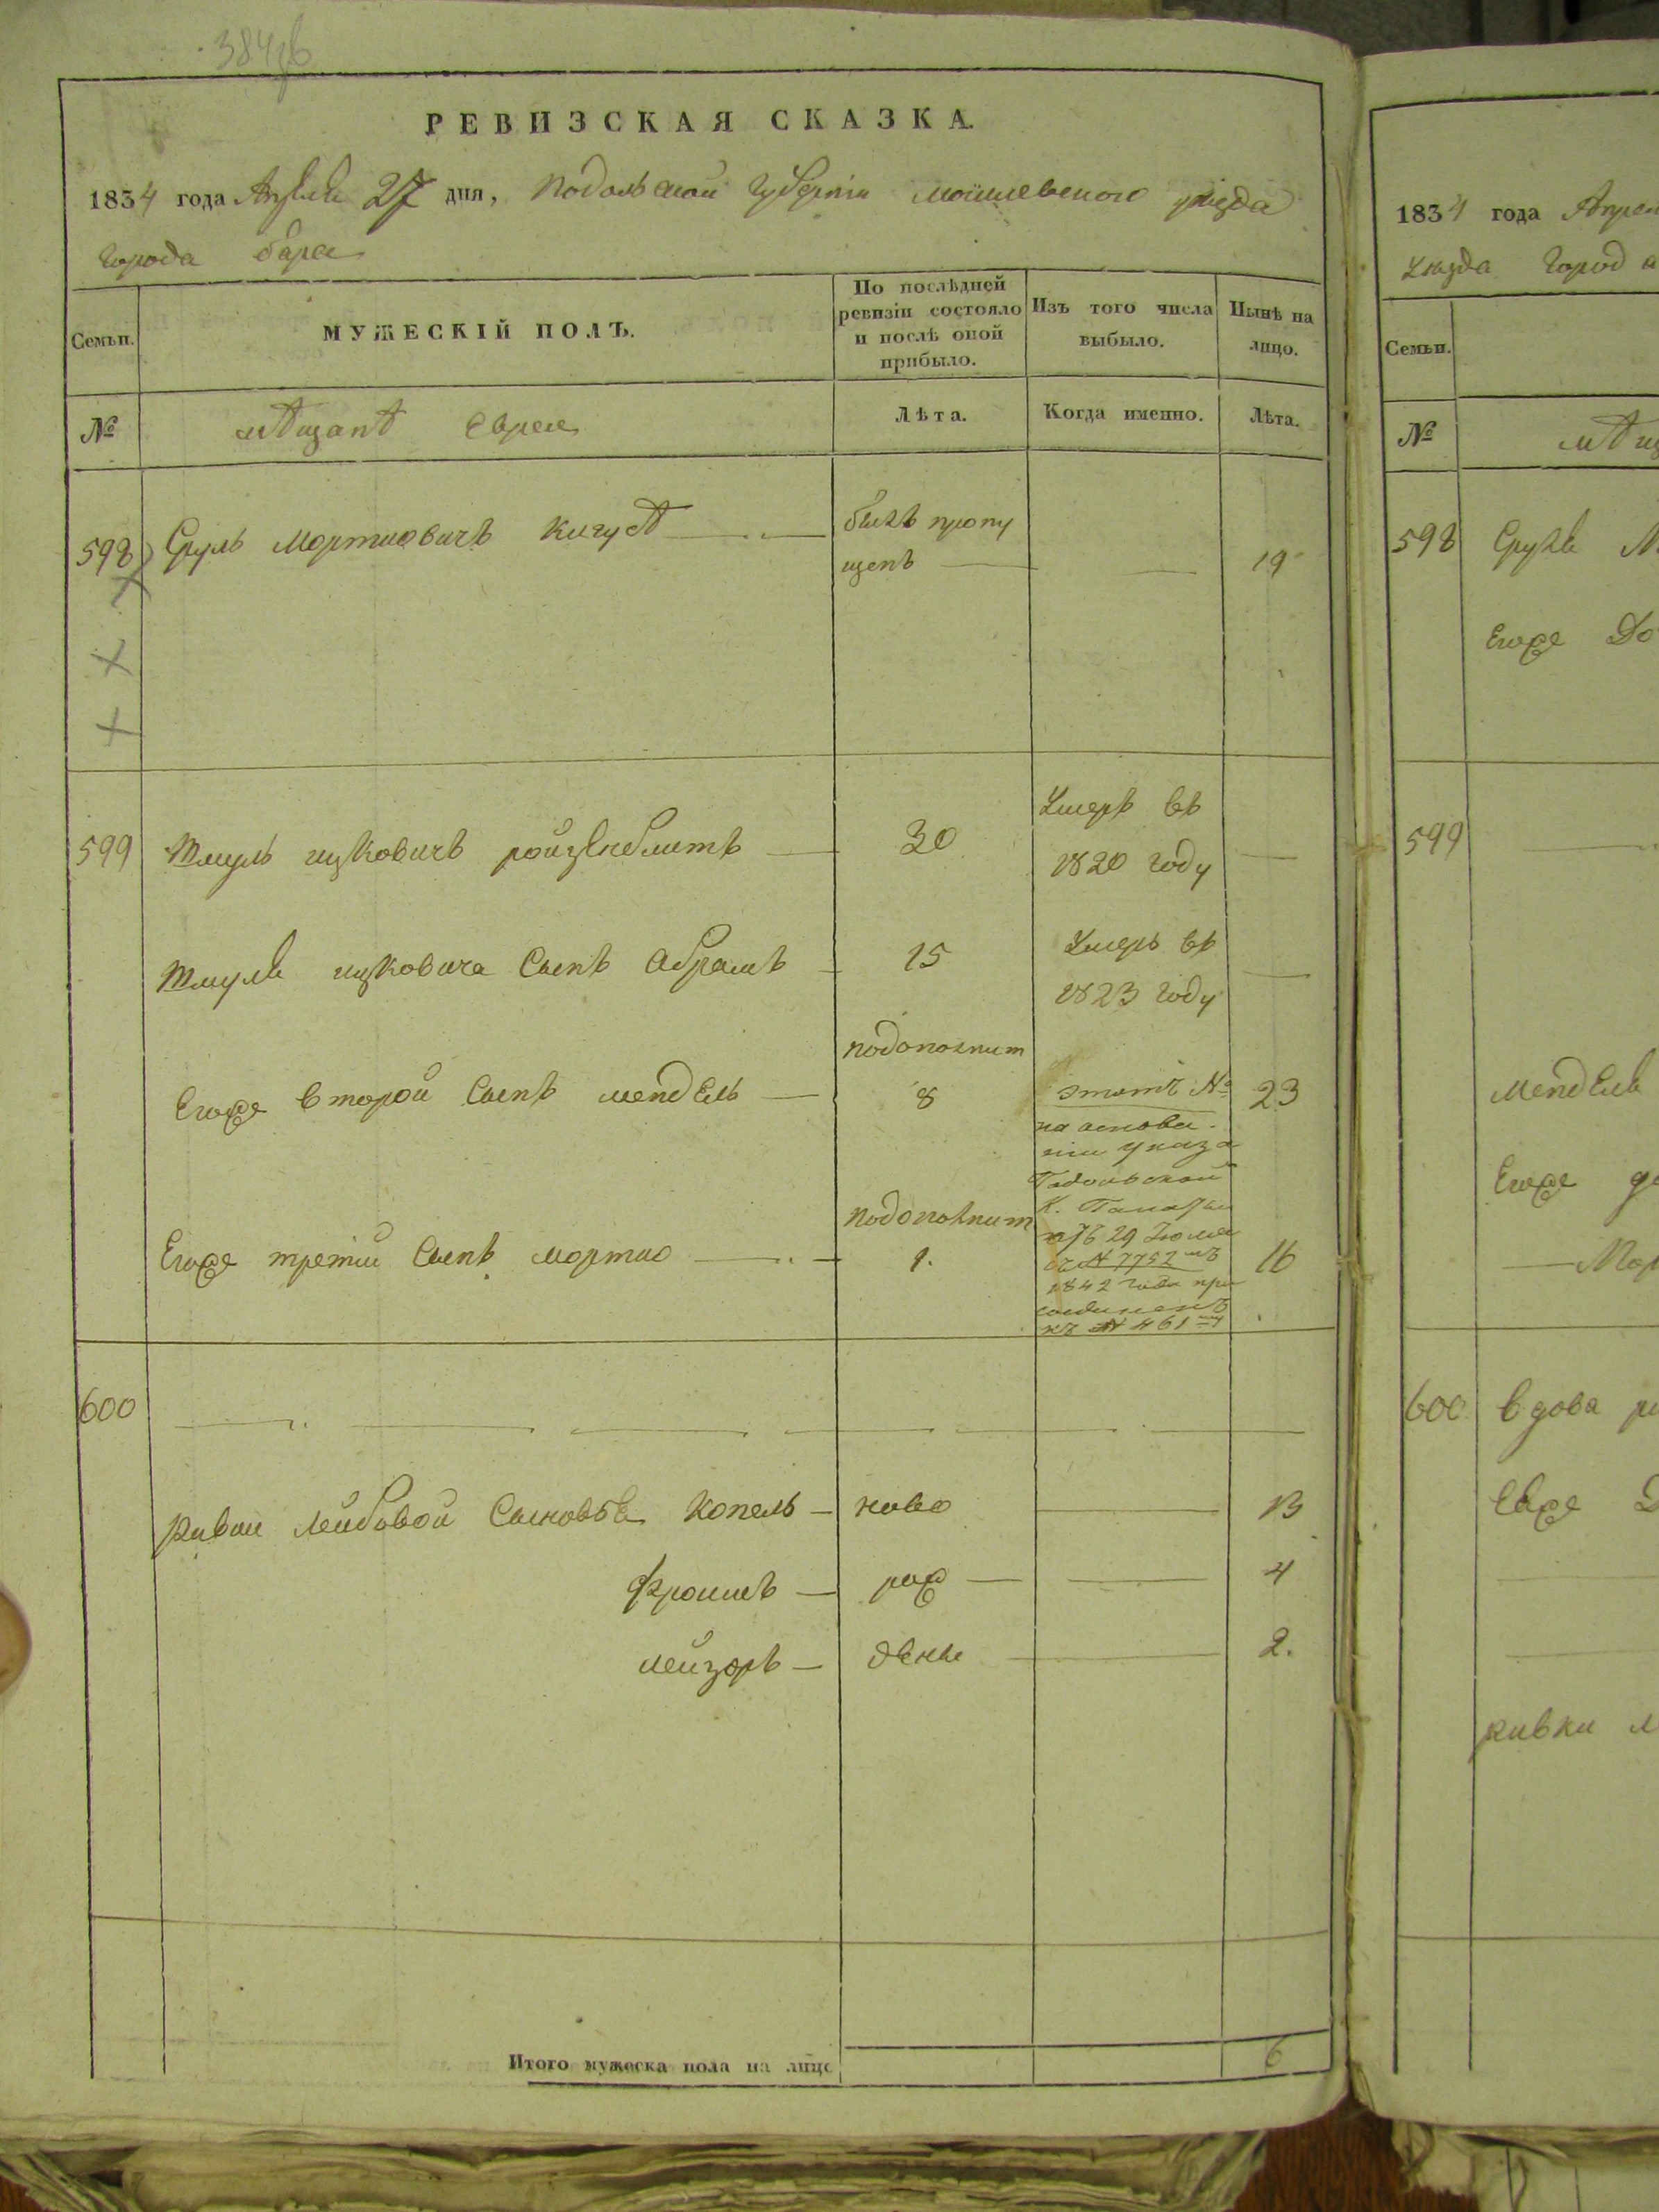 384об
РЕВИЗСКАЯ СКАЗКА.
1834 года Апреля 27 дня, Подольской Губерніи Могилевского уезда
города бара
Семьи.
МУЖЕСКІЙ ПОЛЪ.
По послѣдней
ревизіи состояло
и послѣ оной
прибыло.
Изъ того числа
выбыло.
Нынѣ на
лицо.
№
мѣщанѣ Евреи
Лѣта.
Когда именно.
Лѣта.
598
Сруль Мортковичъ
былъ пропу
щенъ
19
599
Шмуль ицковичъ
30
Умеръ въ
1820 году
Шмуля ицковича Сынъ Абрамъ
15
Умеръ въ
1823 году
Егоже второй Сынъ мендель
подополнит
8
23
этотъ №
на основа
ніи указа
Подольской
К. Палаты
отъ 29 Іюля
№ 7752
1842 года при
соединенъ
къ № 461
Егоже третій Сынъ мортко
подополнит
1.
16
600
Ривки Лейбовой Сыновья Копель
ново
13
Фроимъ
рож
4
лейзоръ
деные
2.
Итого мужеска пола на лицо
6
1834 года Апрел
Уезда Город
Семьи.
№
мѣщ
598
Сруля М
Егоже До
599
Менделя
Егоже
600
вдова
Евоже
ривки Л